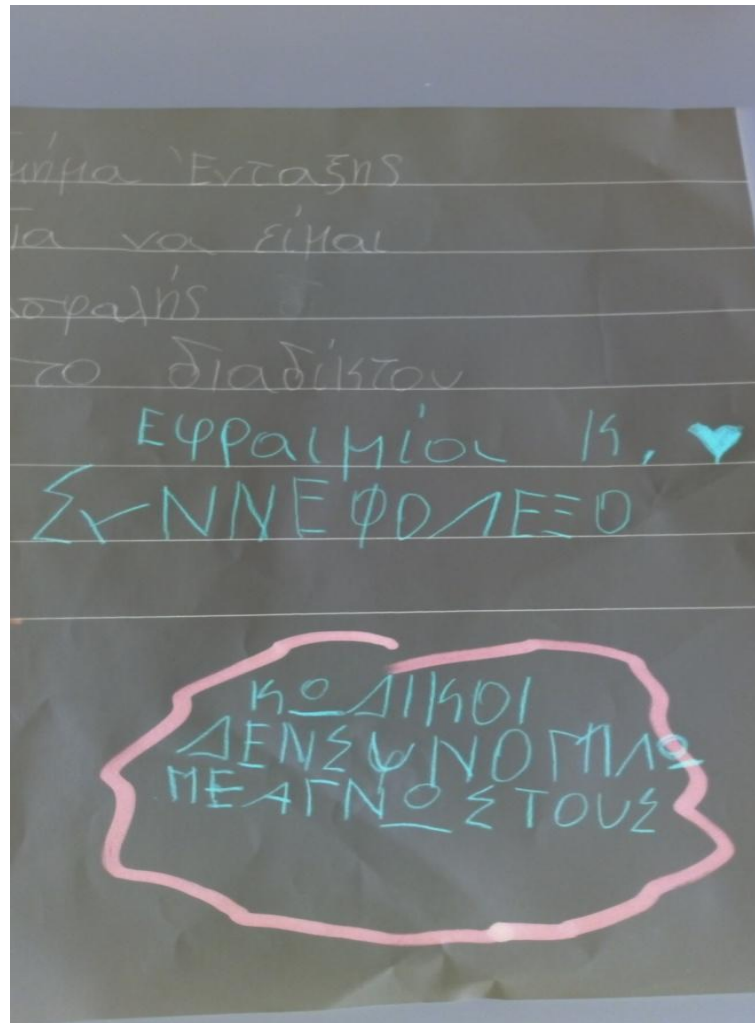 μήμα Ένταξης
ια να είμαι
σφαλής
το διαδίκτου
Εφραιμία Κ.
ΣΥΝΝΕΦΟΛΕΞΟ
ΚΩΔΙΚΟΙ
ΔΕΝΣΨΝΟΜΙΛΩ
ΜΕΑΓΝΩΣΤΟΥΣ